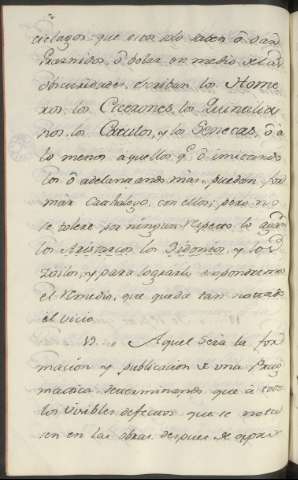 cielagos que estos solo saben ó dar
graznidos, ó bolar en medio de las
obscuridades, escriban los Home-
ros, los Cicerones, los Quintilia-
nos, los Catulos, y los Senecas, ó a
lo menos aquellos q.e ó imitando
los ó adelantando mas, puedan for
mar Cathalogo con ellos; pero no
se tolere por ningun respecto la
los Aristarcos, los y los
Zoilos, y para lograrlo expondremos
el remedio, que queda tan notado
el vicio.
12. Aquel seria la for
macion y publicacion de una Prag
matica determinando que á todos
los visibles defectos que se nota
sen en las obras despues de